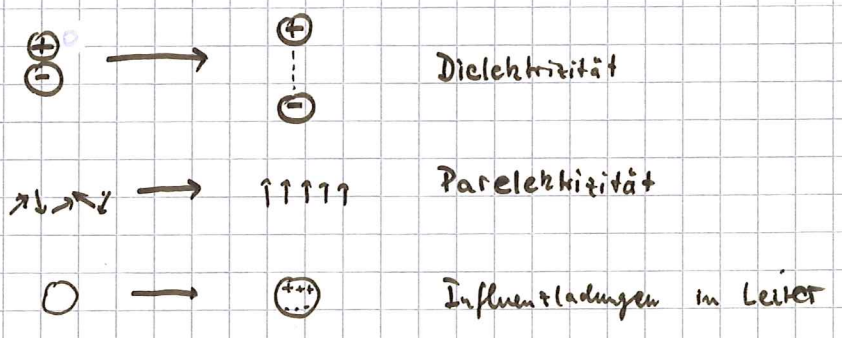 Dielektrizität
Parelektrizität
Influenzladungen in Leiter